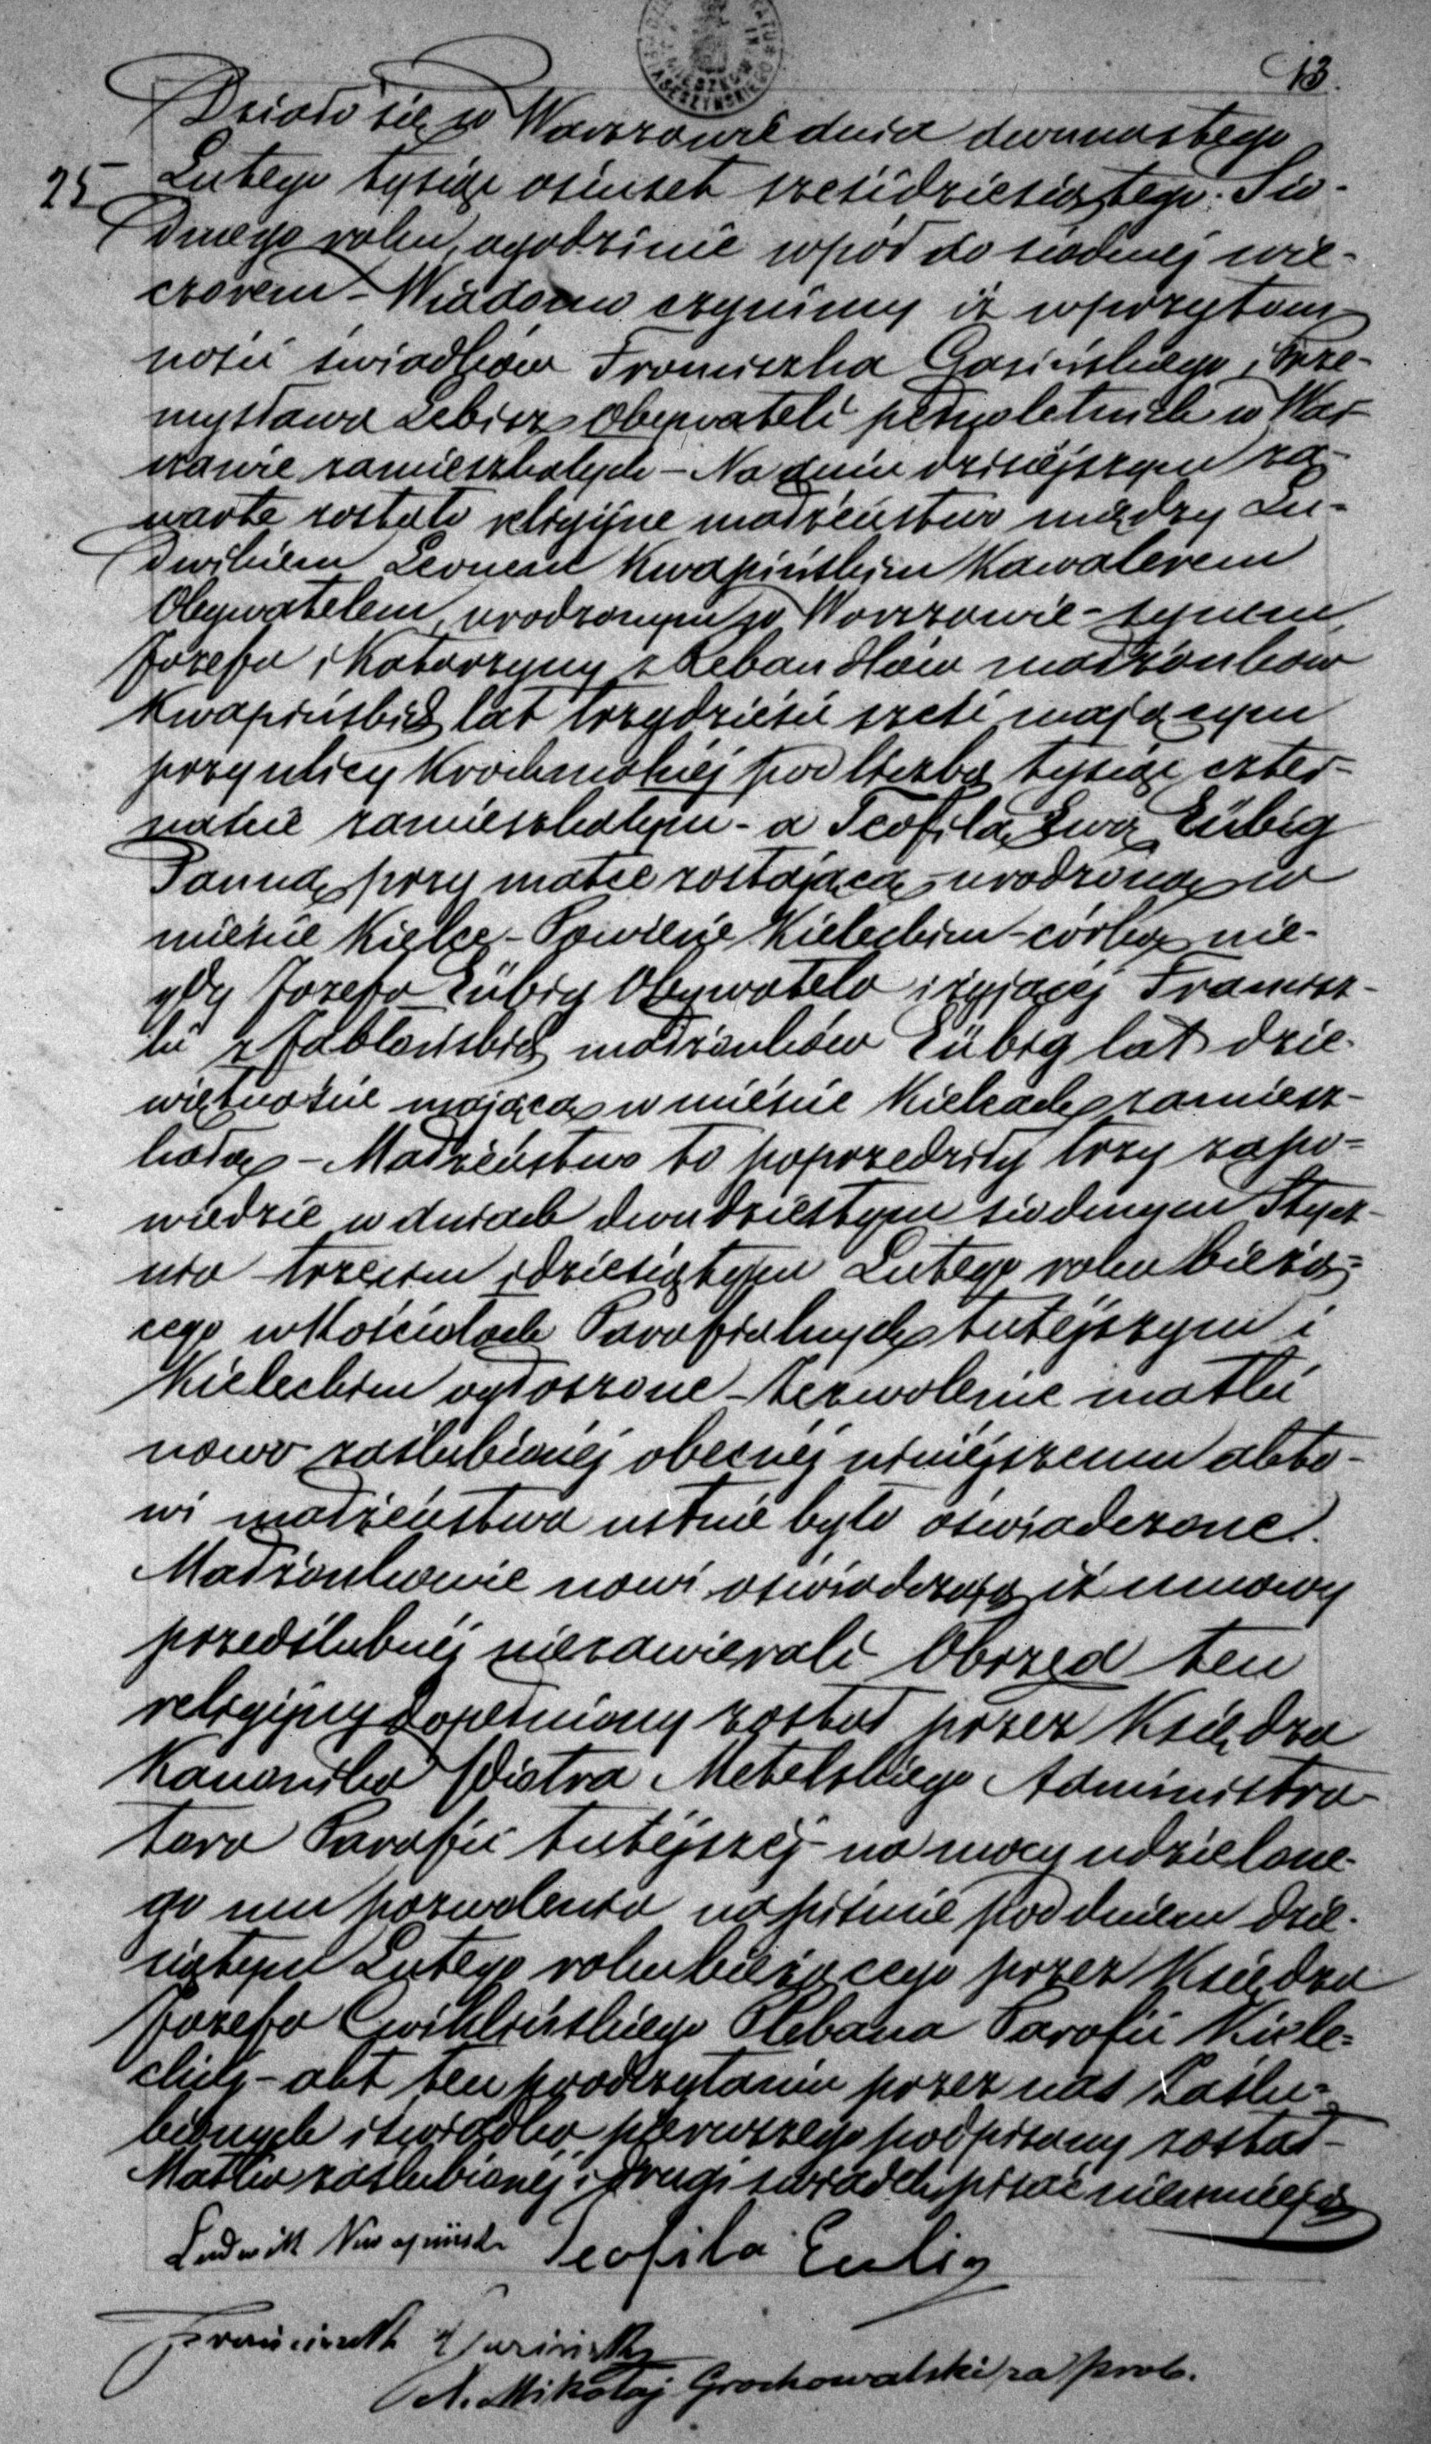 13.
Działo się w Warszawie dnia dwunastego
25 Lutego tysiąc ośmset sześćdziesiątego Sió-
dmego roku, o godzinie wpół do siódmej wie-
czorem – Wiadomo czynimy iż w przytom-
ności świadków Franciszka Gasińskiego, i Prze-
mysława Lebisz Obywateli pełnoletnich w War-
szawie zamieszkałych – Na dniu dzisiejszym za-
warte zostało religijne małżeństwo między Lu-
dwikiem Leonem Kwapińskim Kawalerem
Obywatelem, urodzonym w Warszawie – synem
Józefa i Katarzyny z małżonków
Kwapińskich lat trzydzieści sześć mającym
przy ulicy Krochmalnej pod liczbą tysiąc czter-
naście zamieszkałym – a Teofilą Ewą Eübig
Panną przy matce zostającą – urodzoną w
mieście Kielce – Powiecie Kieleckim – córką nie-
gdy Józefa Eübig Obywatela i żyjącej Francisz-
ki z Jabłońskich małżonków Eübig lat dzie-
więtnaście mającą w mieście Kielcach zamiesz-
kałą – Małżeństwo to poprzedziły trzy zapo-
wiedzie w dniach dwudziestym siódmym Stycz-
nia – trzecim i dziesiątym Lutego roku bieżą-
cego w Kościołach Parafialnych tutejszym i
Kieleckim ogłoszone – zezwolenie matki
nowo-zaślubionej obecnej niniejszemu akto-
wi małżeństwa ustnie było oświadczone.
Małżonkowie nowi oświadczają iż umowy
przedślubnej niezawierali – Obrzęd ten
religijny dopełniony został przez Księdza
Kanonika Piotra Metelskiego Administra-
tora Parafii tutejszej – na mocy udzielone-
go mu pozwolenia na piśmie pod dniem dzie-
siątym Lutego roku bieżącego przez Księdza
Józefa Ćwiklińskiego Plebana Parafii Kiele-
ckiej – akt ten po odczytaniu przez nas Zaślu-
bionych i świadka pierwszego podpisany został –
Matka zaślubionej i drugi świadek pisać nieumieją
Ludwik Kwapiński Teofila Eubig
Franciszek Gasiński
X. Mikołaj Grochowalski za prob.